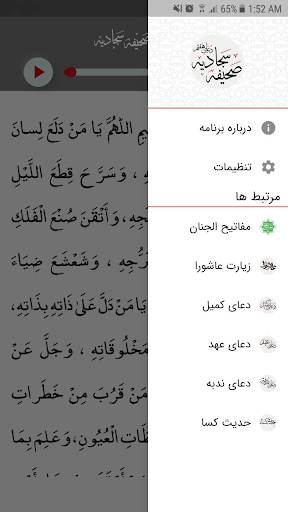 65% 1:52 AM
صحیفه سجادیه
صحیفه سجادیه
درباره برنامه
تنظیمات
مرتبط ها
مفاتیح الجنان
زیارت عاشورا
دعای کمیل
دعای عهد
دعای ندبه
حدیث کسا
اَللّهُمَّ يا مَنْ دَلَعَ لِسانَ
وَسَرَّحَ قِطَعَ اللَّيْلِ
وَاَتْقَنَ صُنْعَ الْفَلَكِ
وَشَعْشَعَ ضِياءَ
يا مَنْ دَلَّ عَلى ذاتِهِ بِذاتِهِ،
مَخْلُوقاتِهِ ، وَجَلَّ عَنْ
مَنْ قَرُبَ مِنْ خَطَراتِ
الْعُيُونِ، وَعَلِمَ بِما